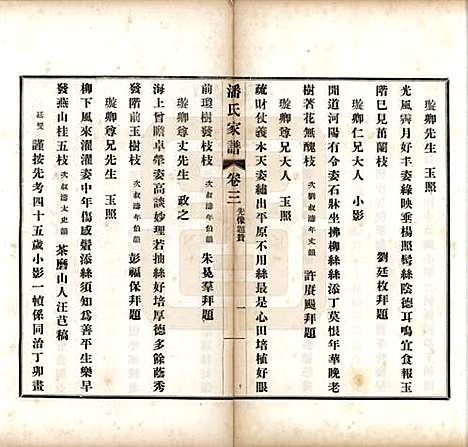 璇卿先生　玉照
光風霽月好丰姿綠映垂楊照鬢絲陰德耳鳴宜食報玉
階已見茁蘭枝　劉廷枚拜題
璇卿仁兄大人　小影
開道河陽有令姿石牀坐拂柳絲絲添丁莫恨年華晚老
樹著花無醜枝　次劉叔濤太丈韻　許賡颺拜題
璇卿尊兄大人　玉照
疏財仗義本天姿繡出平原不用絲最是心田培植好眼
潘氏家譜　卷三　先像題贊　一
前瓊樹發枝枝　次叔濤年伯韻　朱晃羣拜題
璇卿尊丈先生　政之
海上曾瞻卓犖姿高談妙理若抽絲好培厚德多餘蔭秀
發階前玉樹枝　次叔濤年伯韻　彭福保拜題
璇卿尊兄先生　玉照
柳下風來濯濯姿中年傷感鬢添絲須知為善平生樂早
發燕山桂五枝　次叔濤太史韻　茶磨山人汪芑稿
廷燮　謹按先考四十五歲小影一幀係同治丁卯畫